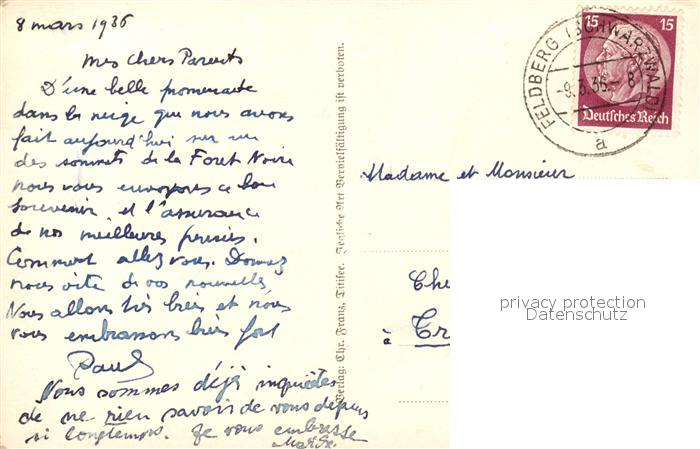 8 mars 1936
Mes Chers Parents
D'une belle promenade
dans la neige que nous avons
fait aujourd'hui sur un
des sommets de la Foret Noire
nous vous envoyons ce bon
souvenir et l'assurance
de nos meilleures pensées.
Comment allez vous. Donnez
nous vite de vos nouvelles
Nous allons très bien et nous
vous embrassons bien fort
Paul
Nous sommes déjà inquiètes
de ne rien savoir de vous depuis
si longtemps. Je vous embrasse
Verlag: Chr. Franz, Titisee. Jegliche Art Vervielfältigung ist verboten.
FELDBERG (SCHWARZWALD)
-9.3.36.- 8
a
15 15
Deutsches Reich
Madame et Monsieur
Che
à Tr
privacy protection
Datenschutz